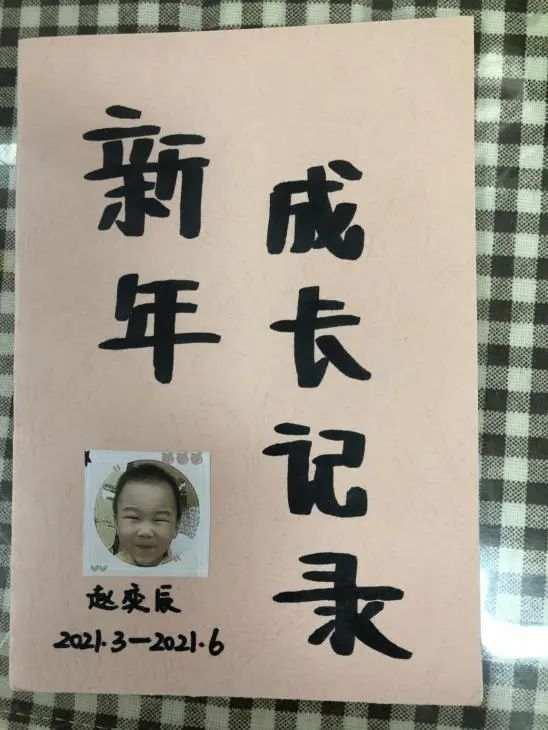 新年
成长记录
赵奕辰
2021.3—2021.6